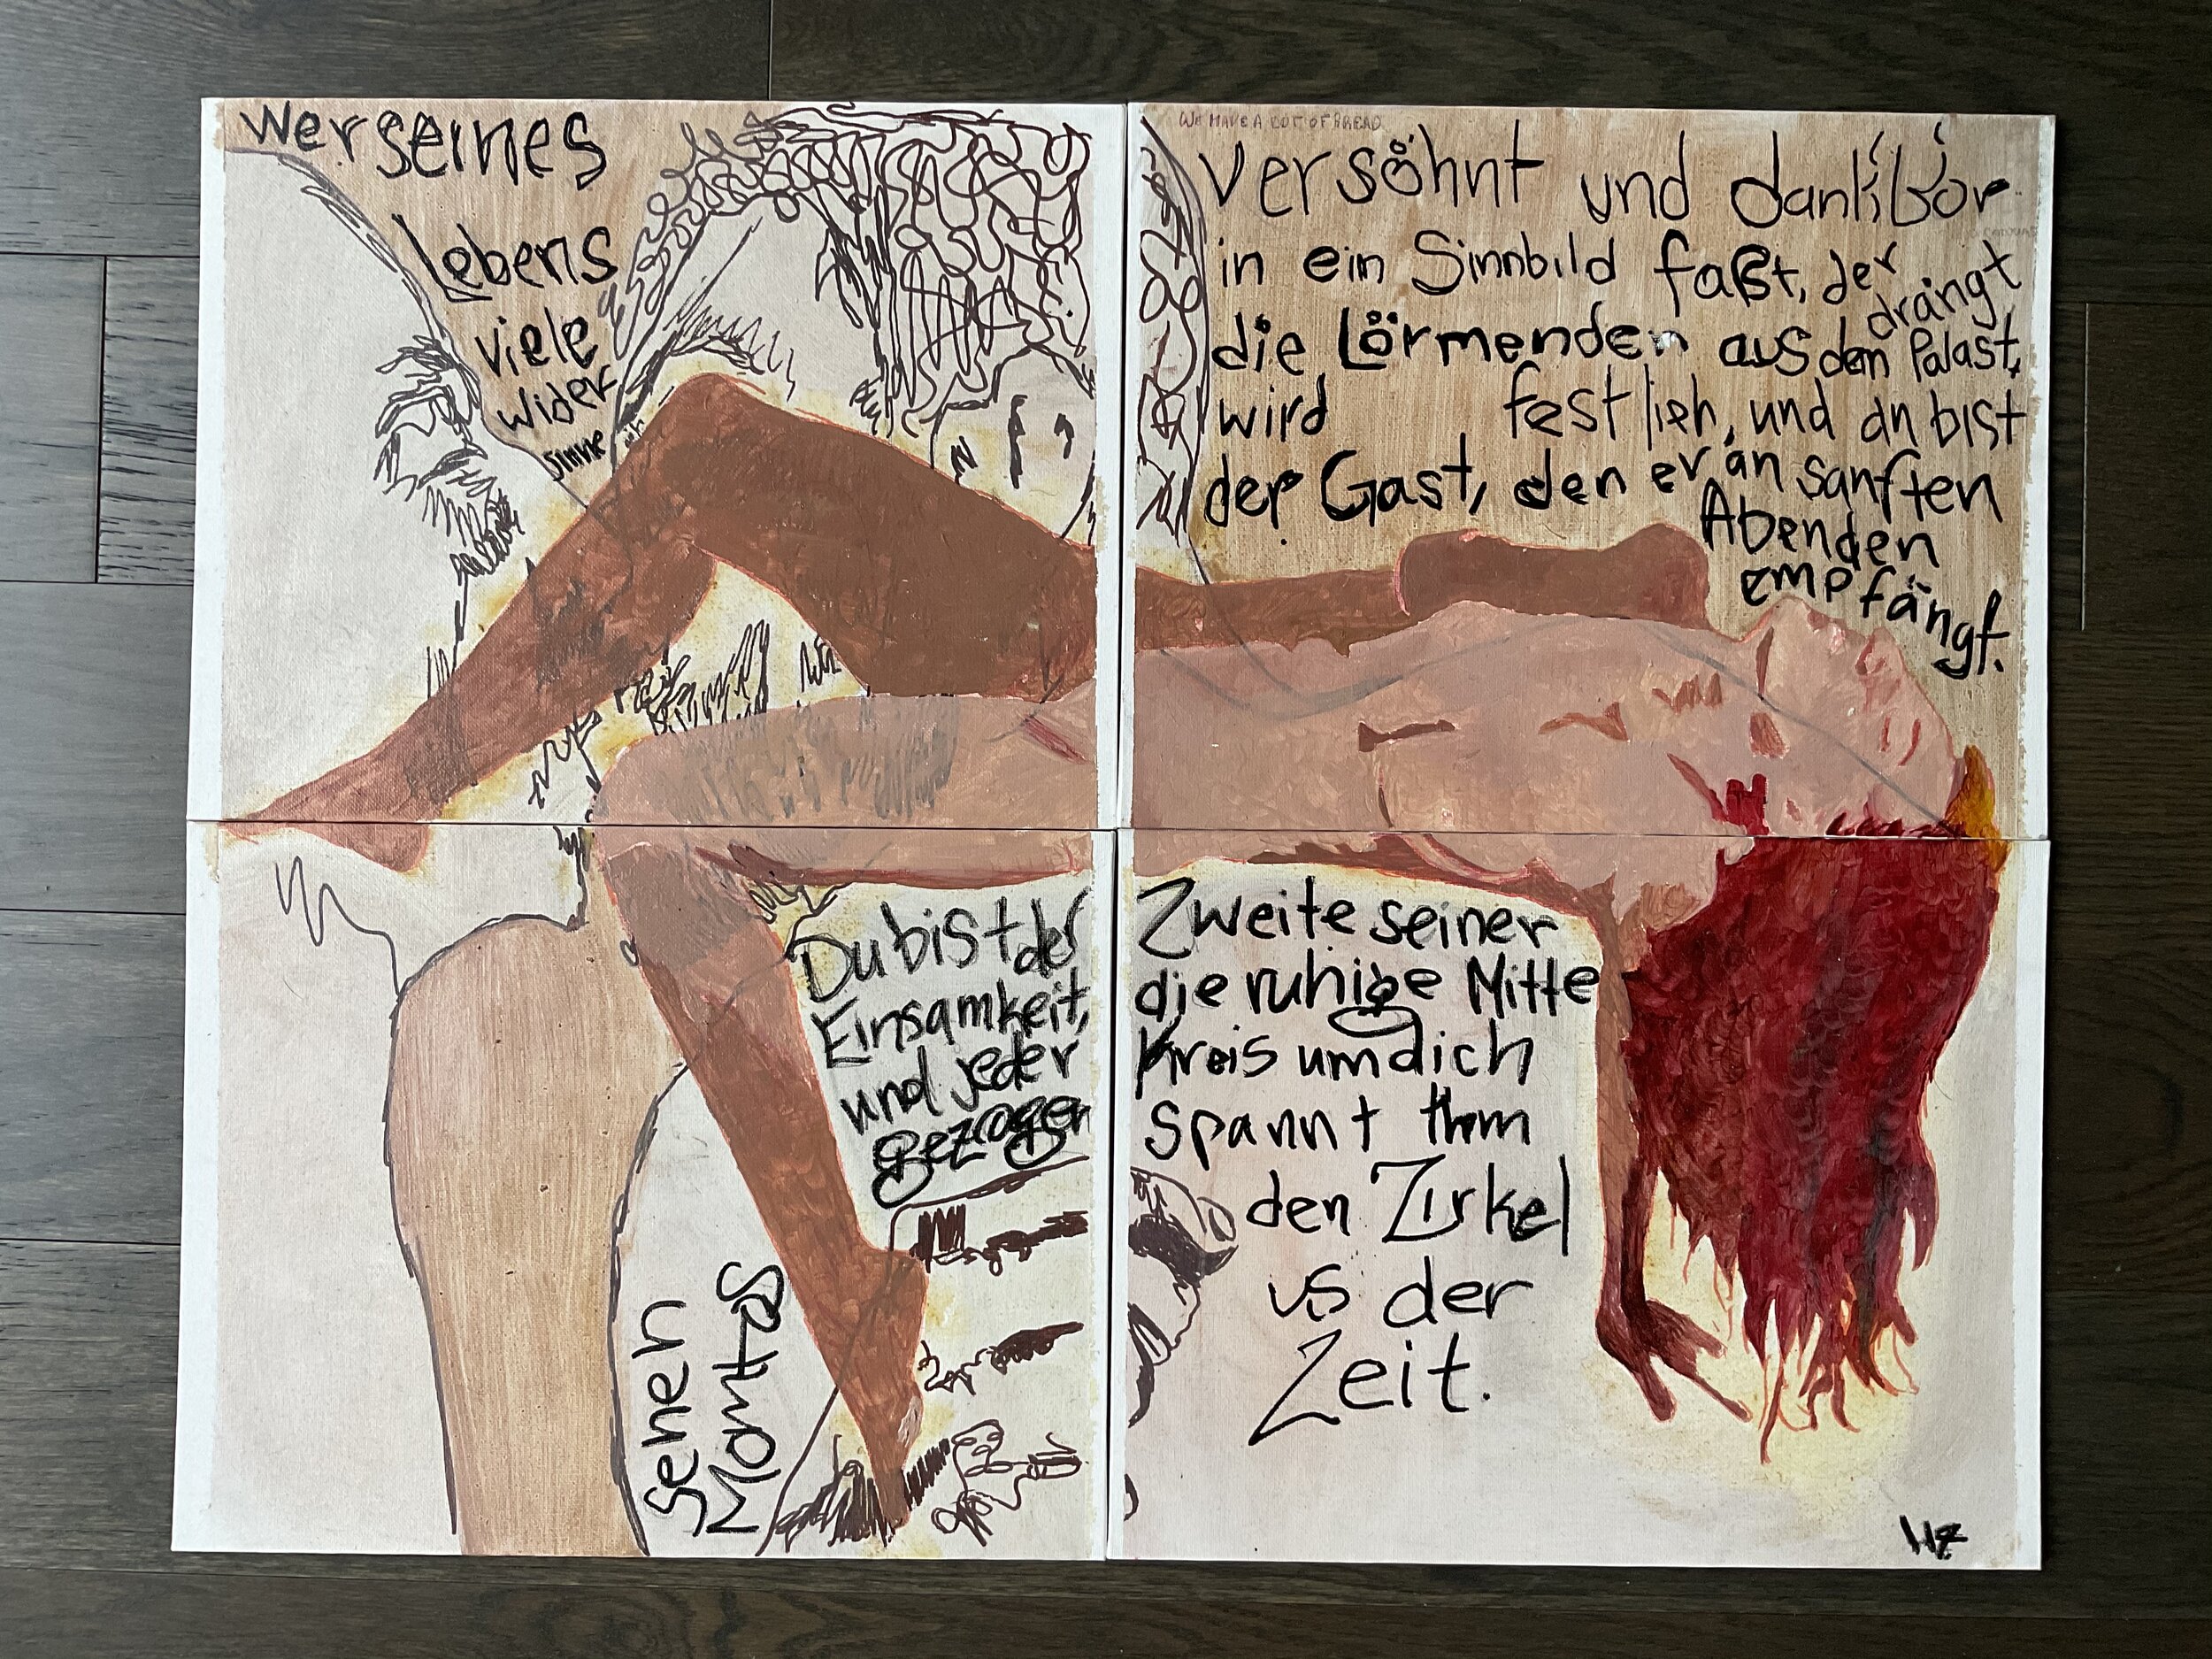 Wer seines
Lebens
viele
wider
sinne
WE HAVE A LOT OF BREAD
versöhnt und dankbar
in ein Sinnbild faßt, der
drängt
die Lörmenden aus dem Palast,
wird festlich, und dn bist
der Gast, den er an sanften
Abenden
empfängt.
Du bist der
Einsamkeit,
und jeder
gezogen
Zweite seiner
die ruhige Mitte
Kreis um dich
spannt
den Zirkel
us der
Zeit.
senen
HZ